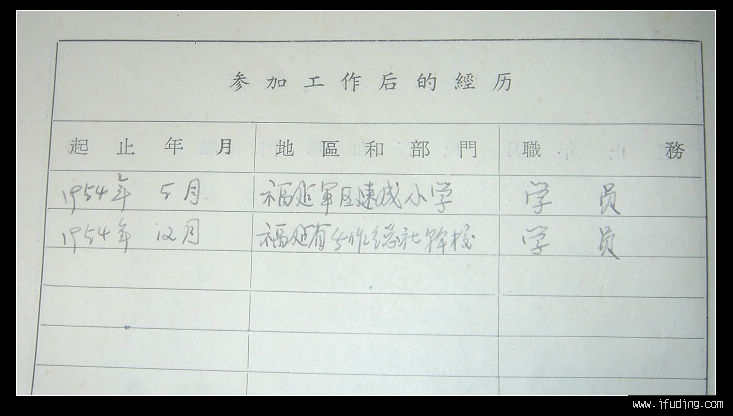 参加工作后的經历
起止年月 地區和部門 職務
1954年 5月 福建軍区速成小学 学员
1954年 12月 福建省合作总社幹校 学员
www.ifuding.com